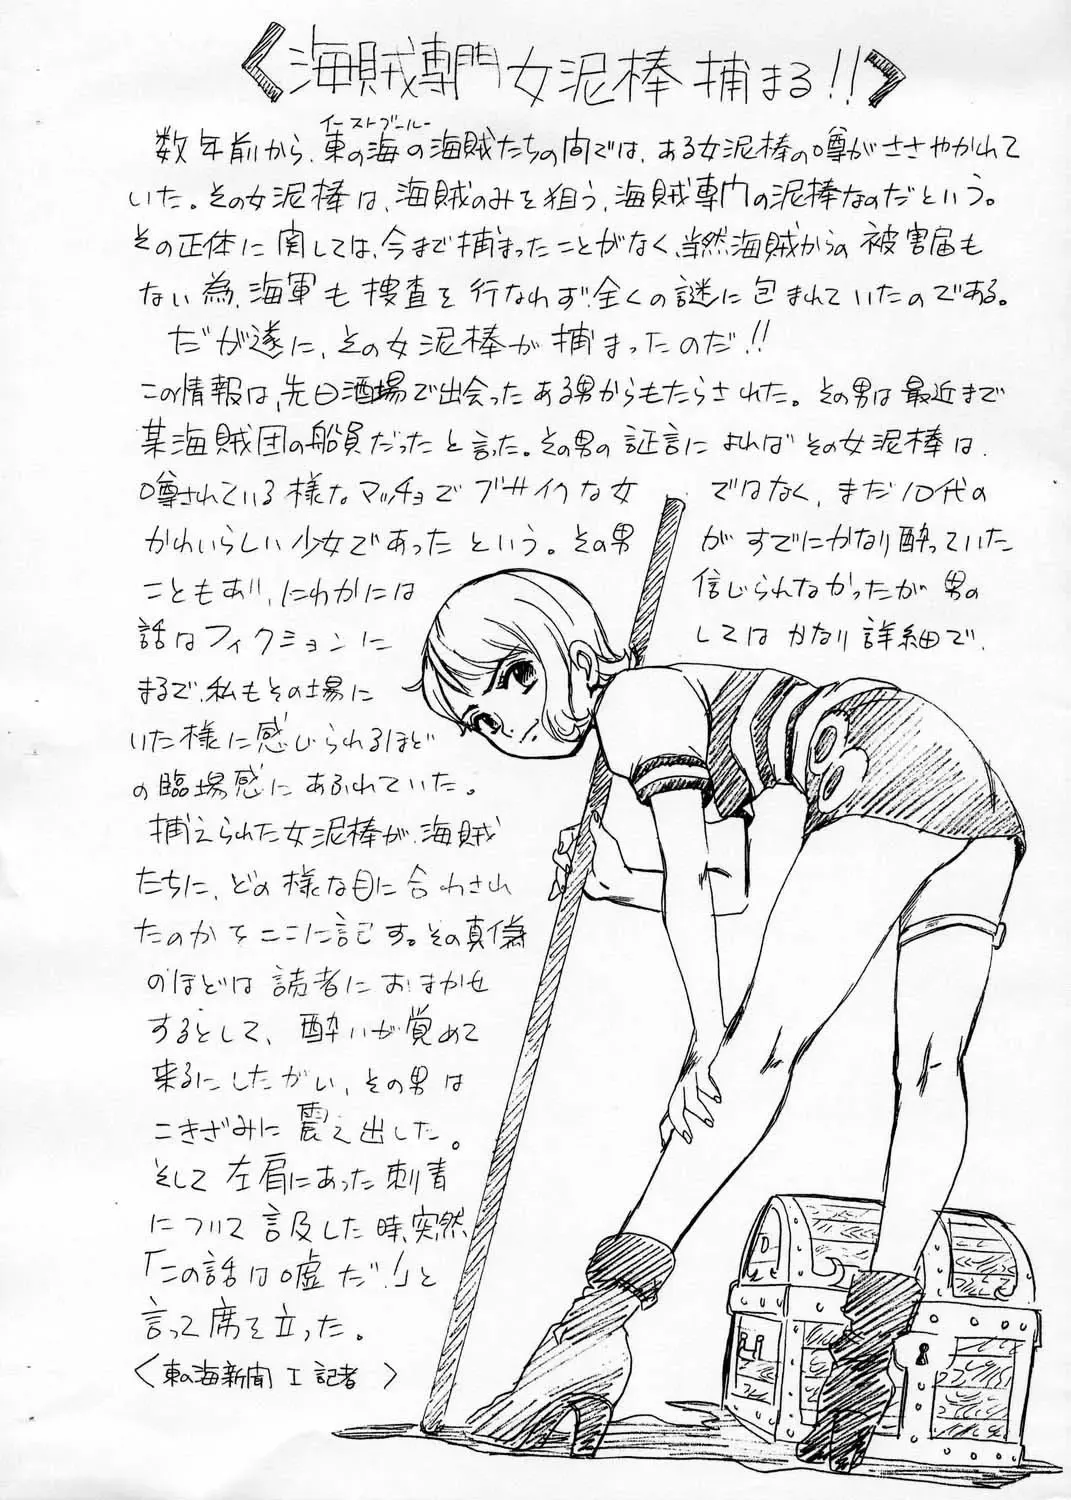 海賊専門女泥棒 捕まる!!
イーストブルー
数年前から、東の海の海賊たちの間では、ある女泥棒の噂がささやかれて
いた。その女泥棒は、海賊のみを狙う、海賊専門の泥棒なのだという。
その正体に関しては、今まで捕まったことがなく、当然海賊からの被害届も
ない為、海軍も捜査を行なわず、全くの謎に包まれていたのである。
だが遂に、その女泥棒が捕まったのだ!!
この情報は、先日酒場で出会ったある男からもたらされた。その男は最近まで
某海賊団の船員だったと言った。その男の証言によればその女泥棒は、
噂されている様なマッチョでブサイクな女ではなく、まだ10代の
かわいらしい少女であったという。その男がすでにかなり酔っていた
こともあり、にわかには信じられなかったが男の
話はフィクションにしてはかなり詳細で、
まるで、私もその場に
いた様に感じられるほど
の臨場感にあふれていた。
捕えられた女泥棒が、海賊
たちに、どの様な目に合わされ
たのかをここに記す。その真偽
のほどは読者におまかせ
するとして、酔いが覚めて
来るにしたがい、その男は
こきざみに震え出した。
そして左肩にあった刺青
について言及した時、突然
「この話は嘘だ!」と
言って席を立った。
〈東の海新聞 I記者〉